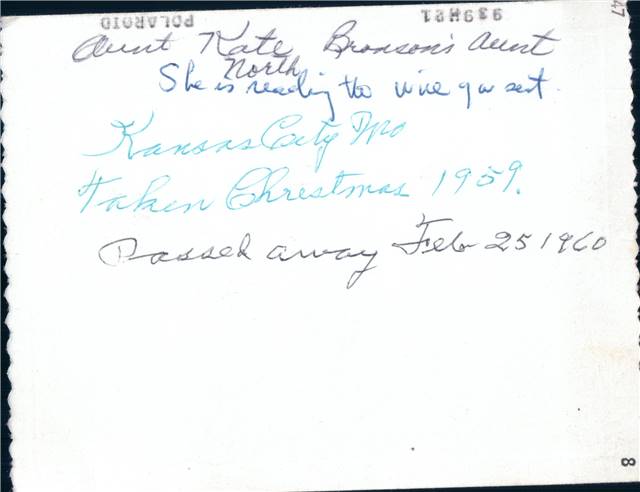 POLAROID 939H21
47
Aunt Kate Bronson's Aunt
North
She is reading the wire you sent.
Kansas City Mo
Taken Christmas 1959.
Passed away Feb 25 1960
8